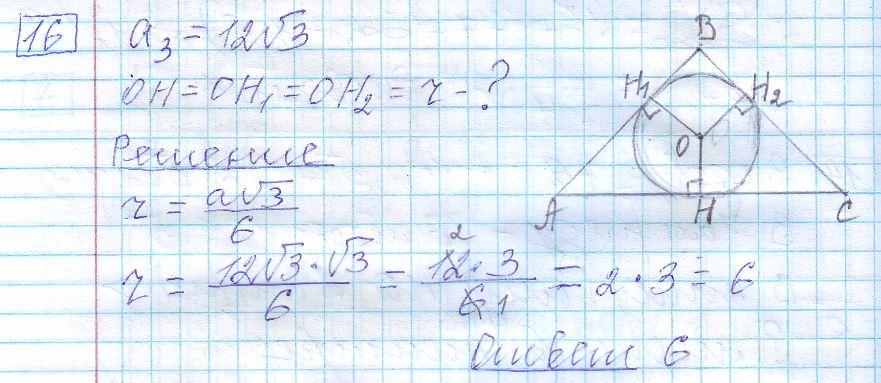 16 a₃ = 12√3
OH = OH₁ = OH₂ = r - ?
Решение
r = a√3/6
r = 12√3·√3/6 = 12·3/6 = 2·3 = 6
2
1
Ответ 6
B
H₁ H₂
O
A H C